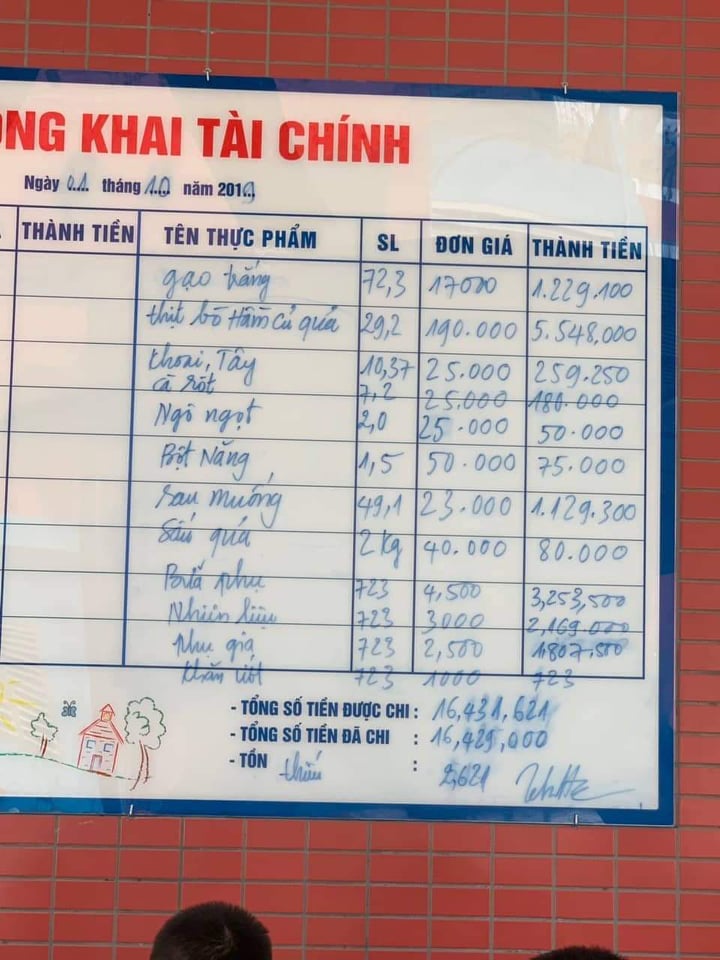 ÔNG KHAI TÀI CHÍNH
Ngày 01 tháng 10 năm 2019
THÀNH TIỀN TÊN THỰC PHẨM SL ĐƠN GIÁ THÀNH TIỀN
gạo trắng 72,3 17000 1.229.100
thịt bò Hầm củ quả 29,2 190.000 5.548.000
khoai, Tây 10,37 25.000 259.250
cà rốt 7,2 25.000 180.000
Ngô ngọt 2,0 25.000 50.000
Bột Năng 1,5 50.000 75.000
rau muống 49,1 23.000 1.129.300
Sấu quả 2 kg 40.000 80.000
Bữa phụ 723 4,500 3,253,500
Nhiên liệu 723 3000 2,169.000
Phụ gia 723 2,500 1807,500
khăn ướt 723 1000 723
- TỔNG SỐ TIỀN ĐƯỢC CHI : 16,431,621
- TỔNG SỐ TIỀN ĐÃ CHI : 16,429,000
- TỒN thiếu : 2,621